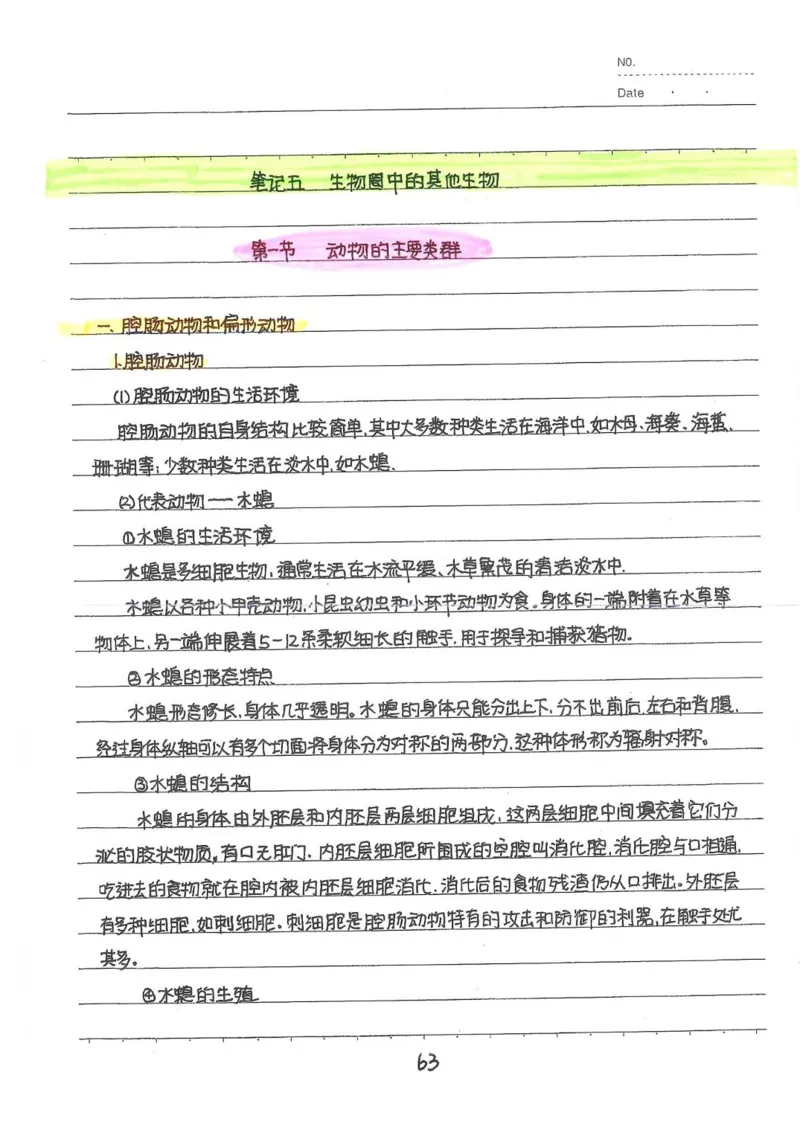 NO.
Date · ·
笔记五 生物圈中的其他生物
第一节 动物的主要类群
一、腔肠动物和扁形动物
1.腔肠动物
(1)腔肠动物的生活环境
腔肠动物的自身结构比较简单,其中大多数种类生活在海洋中,如水母、海葵、海蜇、
珊瑚等;少数种类生活在淡水中,如水螅.
(2)代表动物——水螅
①水螅的生活环境
水螅是多细胞生物,通常生活在水流平缓、水草繁茂的清洁淡水中.
水螅以各种小甲壳动物,小昆虫幼虫和小环节动物为食。身体的一端附着在水草等
物体上,另一端伸展着5-12条柔软细长的触手,用于探寻和捕获猎物。
②水螅的形态特点
水螅形态修长,身体几乎透明。水螅的身体只能分出上下,分不出前后、左右和背腹,
经过身体纵轴可以有多个切面将身体分为对称的两部分,这种体形称为辐射对称。
③水螅的结构
水螅的身体由外胚层和内胚层两层细胞组成,这两层细胞中间填充着它们分
泌的胶状物质。有口无肛门、内胚层细胞所围成的空腔叫消化腔,消化腔与口相通,
吃进去的食物就在腔内被内胚层细胞消化,消化后的食物残渣仍从口排出。外胚层
有多种细胞,如刺细胞。刺细胞是腔肠动物特有的攻击和防御的利器,在触手处尤
其多。
④水螅的生殖
63